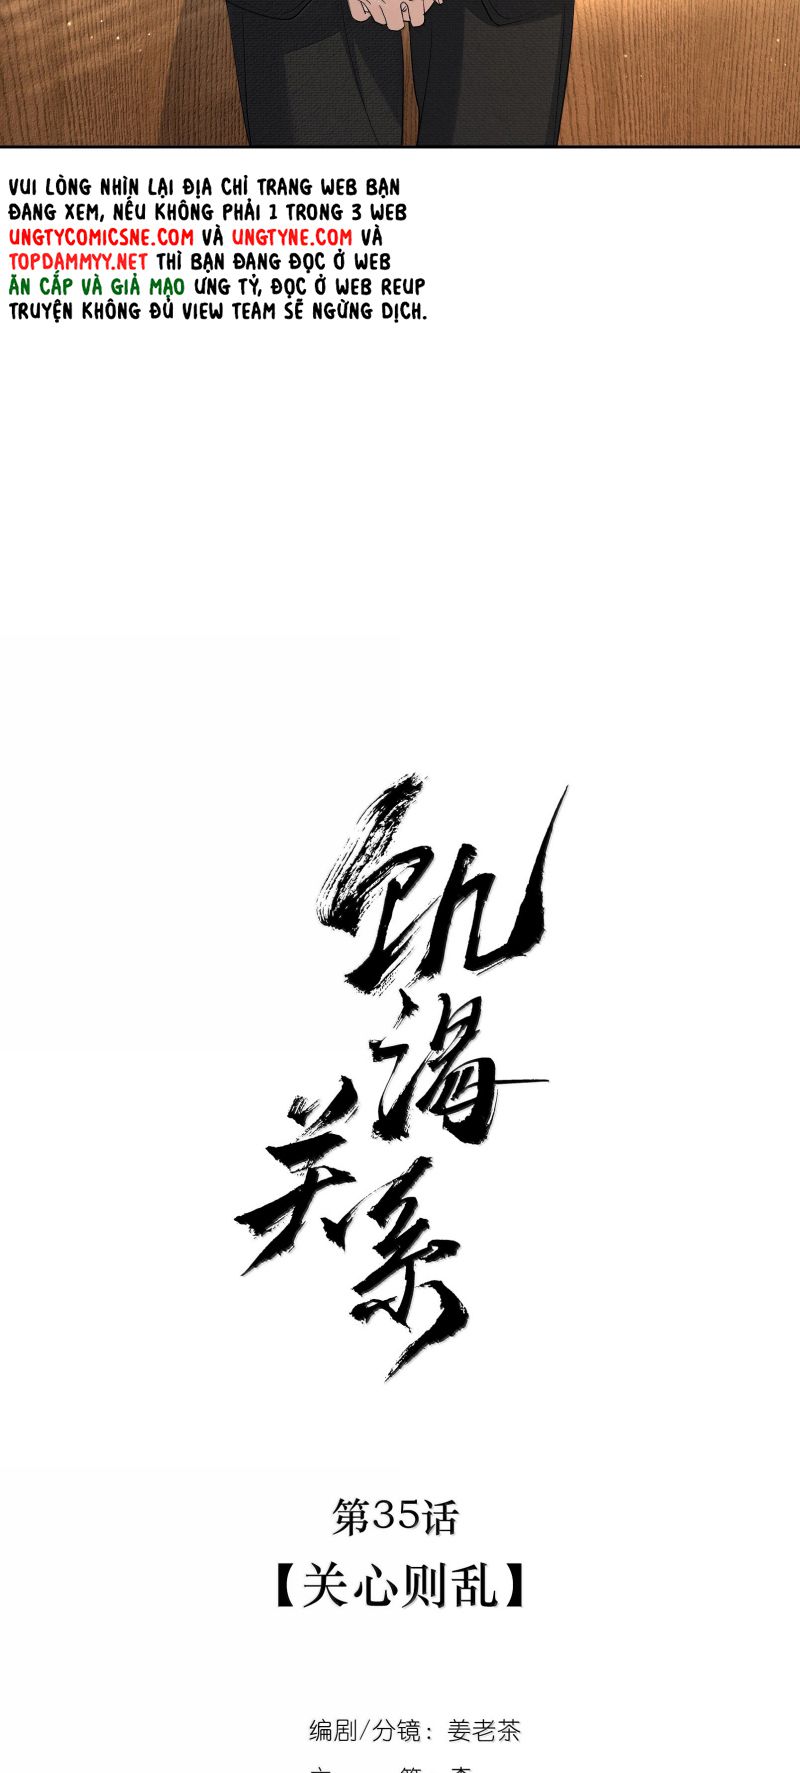 VUI LÒNG NHÌN LẠI ĐỊA CHỈ TRANG WEB BẠN
ĐANG XEM, NẾU KHÔNG PHẢI 1 TRONG 3 WEB
UNGTYCOMICSNE.COM VÀ UNGTYNE.COM VÀ
TOPDAMMYY.NET THÌ BẠN ĐANG ĐỌC Ở WEB
ĂN CẮP VÀ GIẢ MẠO ƯNG TỶ, ĐỌC Ở WEB REUP
TRUYỆN KHÔNG ĐỦ VIEW TEAM SẼ NGỪNG DỊCH.
饥渴
关系
第35话
【关心则乱】
编剧/分镜：姜老茶